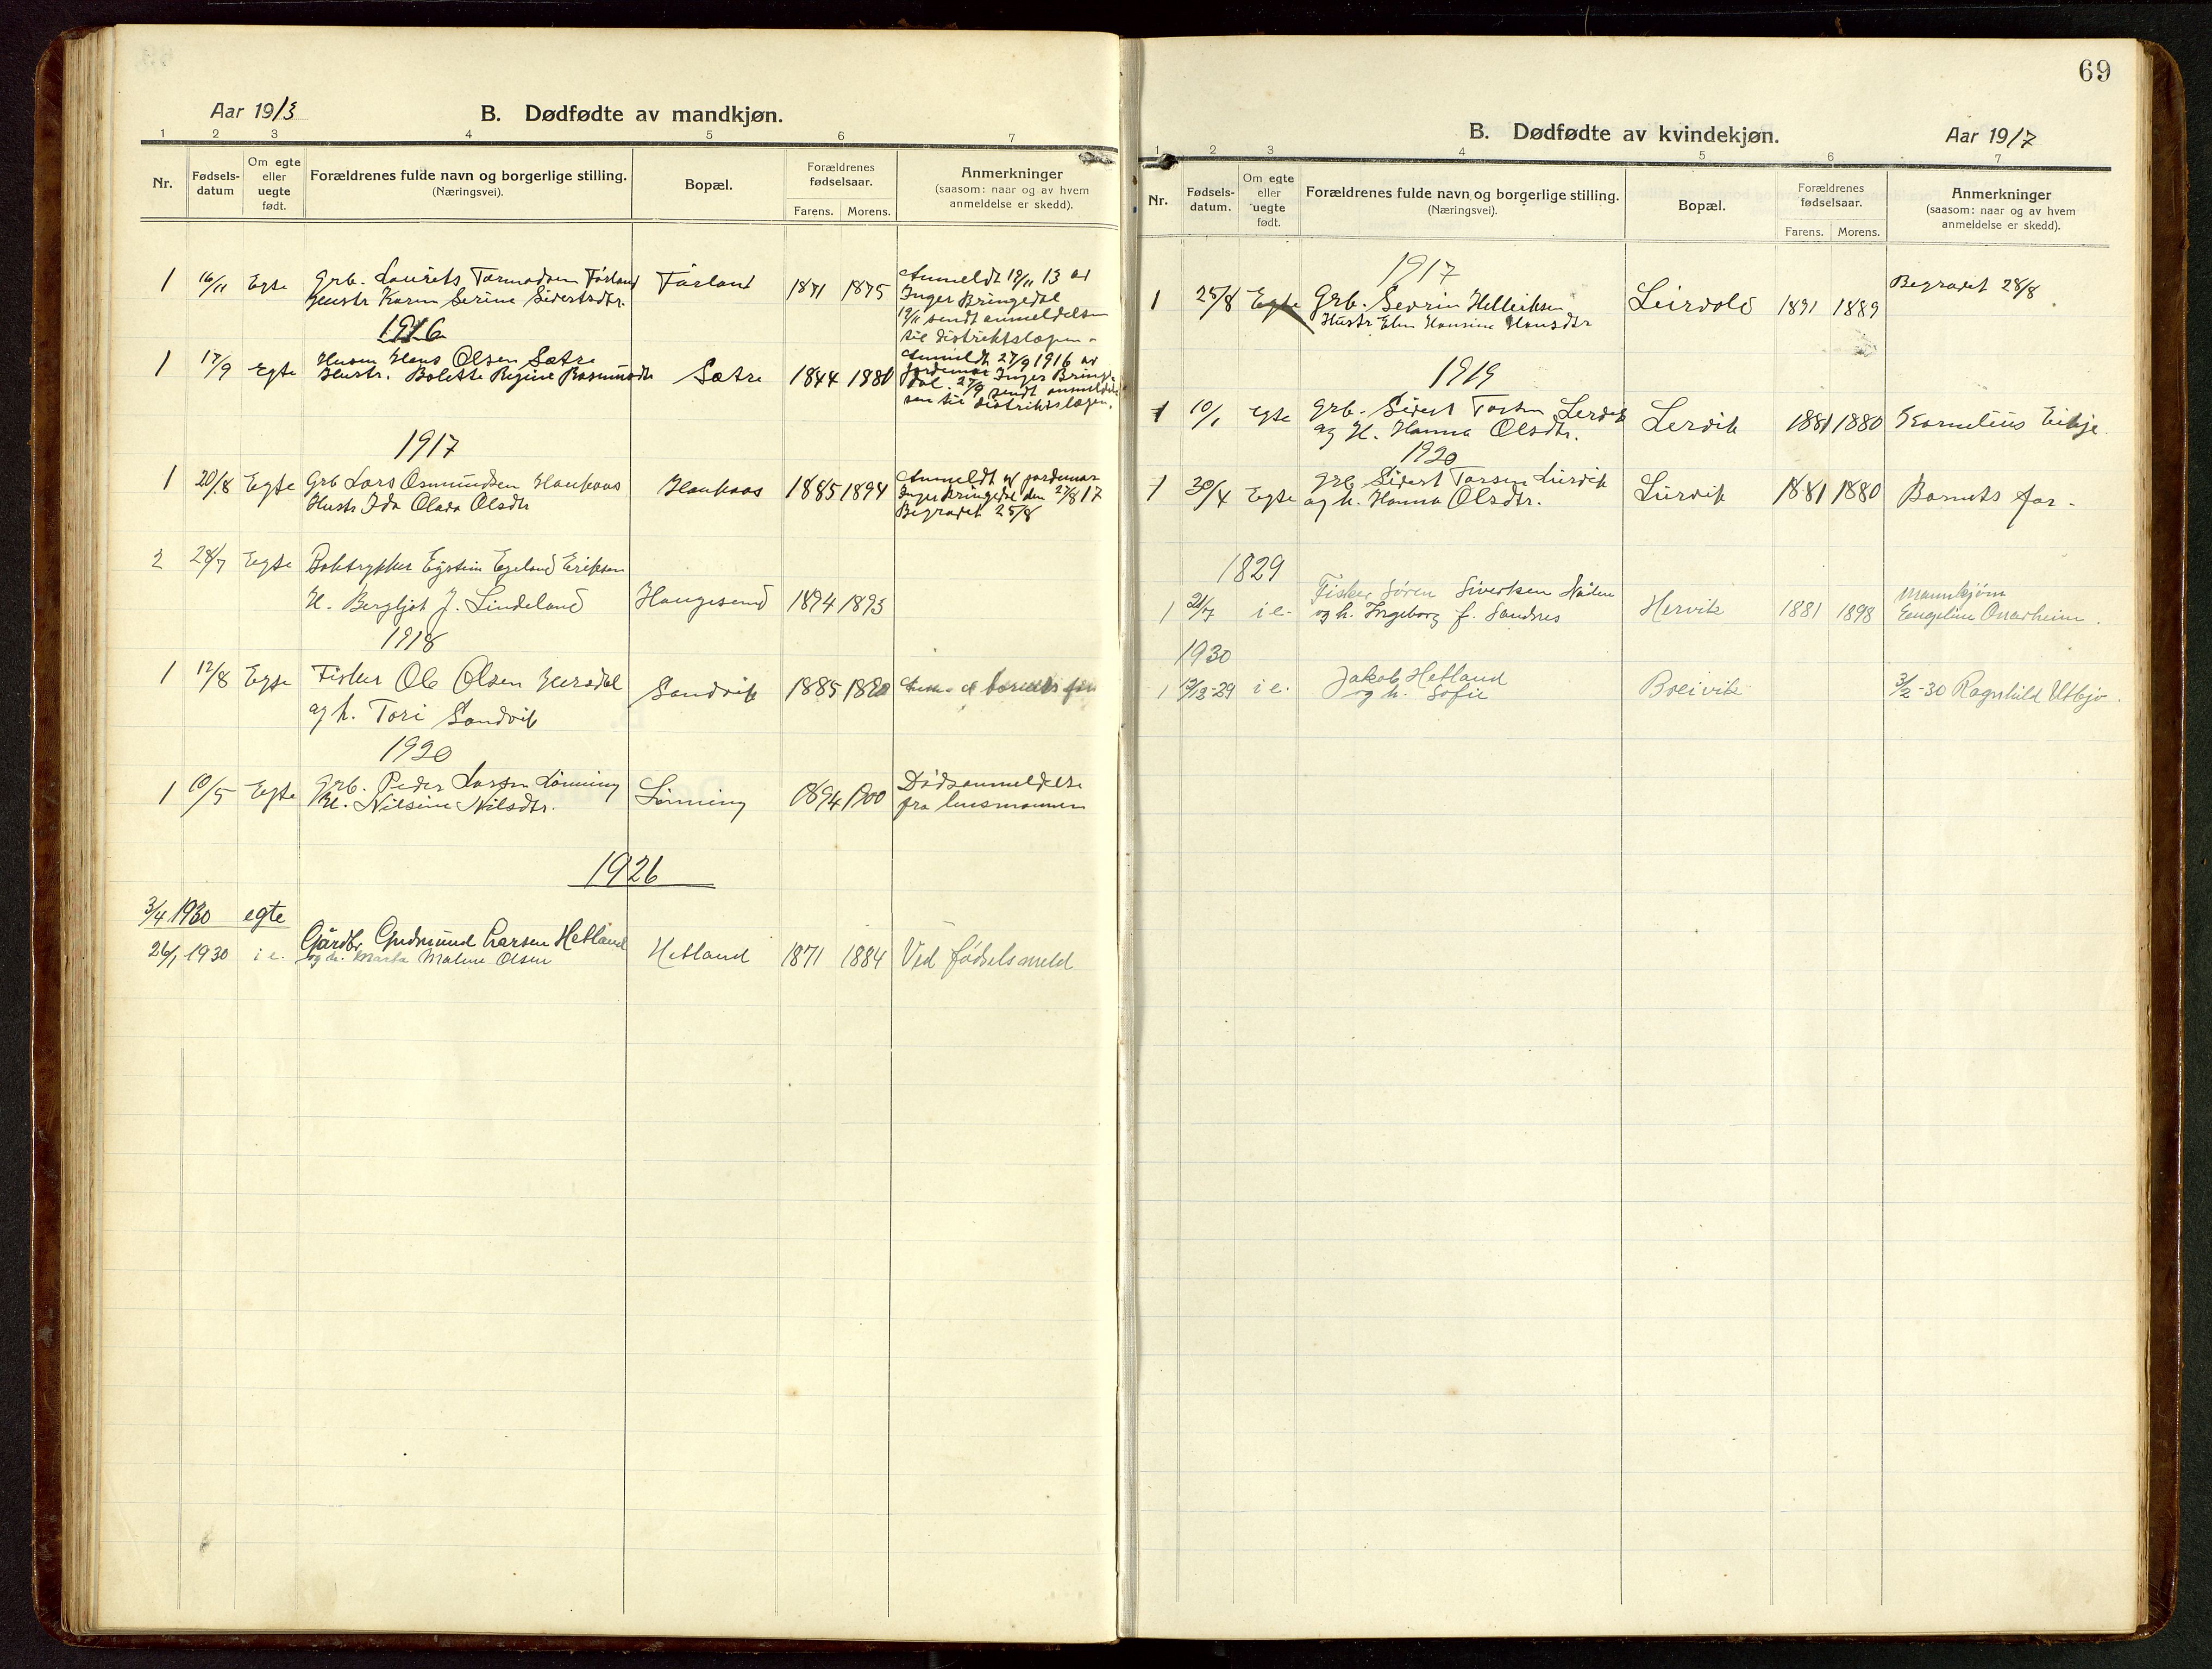 Aar 1913
B. Dødfødte av mandkjøn.
1 2 3 4 5 6 7
Nr.
Fødsels-
datum
Om egte
eller
uegte
født.
Forældrenes fulde navn og borgerlige stilling.
(Næringsvei).
Bopæl.
Forældrenes
fødselsaar.
Farens. Morens.
Anmerkninger
(saasom: naar og av hvem
anmeldelse er skedd).
1 16/11 Egte Grb. Laurits Tormodsen Førland Førland 1871 1875 Anmeldt 19/11 13 av
Hustr Karen Serine Sivertsdtr. Inger Bringedal
19/11 sendt anmeldelsen
til distriktslægen.
1916
1 17/9 Egte Husm Hans Olsen Sætre Sætre 1844 1880 Anmeldt 27/9 1916 av
Hustr. Bolette Regine Rasmusdtr jordemor Inger Bringe-
dal. 27/9 sendt anmeldel-
sen til distriktslægen.
1917
1 20/8 Egte Grb Lars Osmundsen Haukaas Haukaas 1885 1894 Anmeldt af jordemor
Hustr Ida Olava Olsdtr Inger Bringedal den 27/8 17
Begravet 25/8
2 28/7 Egte Boktrykker Eystein Egeland Eriksen
H. Bergljot J. Lindeland Haugesund 1894 1893
1918
1 12/8 Egte Fisker Ole Olsen Hersdal Sandvik 1885 1890 barnets far
og h. Tori Sandvik
1920
1 10/5 Egte Grb. Peder Larsen Lønning Lønning 1894 1900 Dødsanmeldelse
H. Nilsine Nilsdtr. fra lensmannen
1926
3/4 1930 egte
26/1 1930 i e. Gårdbr. Gudmund Larsen Hetland Hetland 1871 1884 Ved fødselsmeld
og h. Marta Malene Olsen
69
B. Dødfødte av kvindekjøn.
Aar 1917
1 2 3 4 5 6 7
Nr.
Fødsels-
datum.
Om egte
eller
uegte
født.
Forældrenes fulde navn og borgerlige stilling.
(Næringsvei).
Bopæl.
Forældrenes
fødselsaar.
Farens. Morens.
Anmerkninger
(saasom: naar og av hvem
anmeldelse er skedd).
1917
1 25/8 Egte Grb. Sevrin Helliksen Leirvold 1891 1889 Begravet 28/8
Hustr Elen Hansine Hansdtr
1919
1 10/1 Egte Grb. Sivert Torsen Lervik Lervik 1881 1880 Kornelius Eikje.
og H. Hanna Olsdtr.
1920
1 30/4 Egte Grb Sivert Torsen Lirvik Lirvik 1881 1880 Barnets far.
og h. Hanna Olsdtr.
1829
1 21/7 i e. Fisker Søren Sivertsen Hervik 1881 1898 Mannkjønn
og h. Ingeborg f. Sandnes Engeline Onarheim.
1930
1 12/12-29 i e. Jakob Hetland Breivik 3/2-30 Ragnhild Utbjo.
og h. Sofie